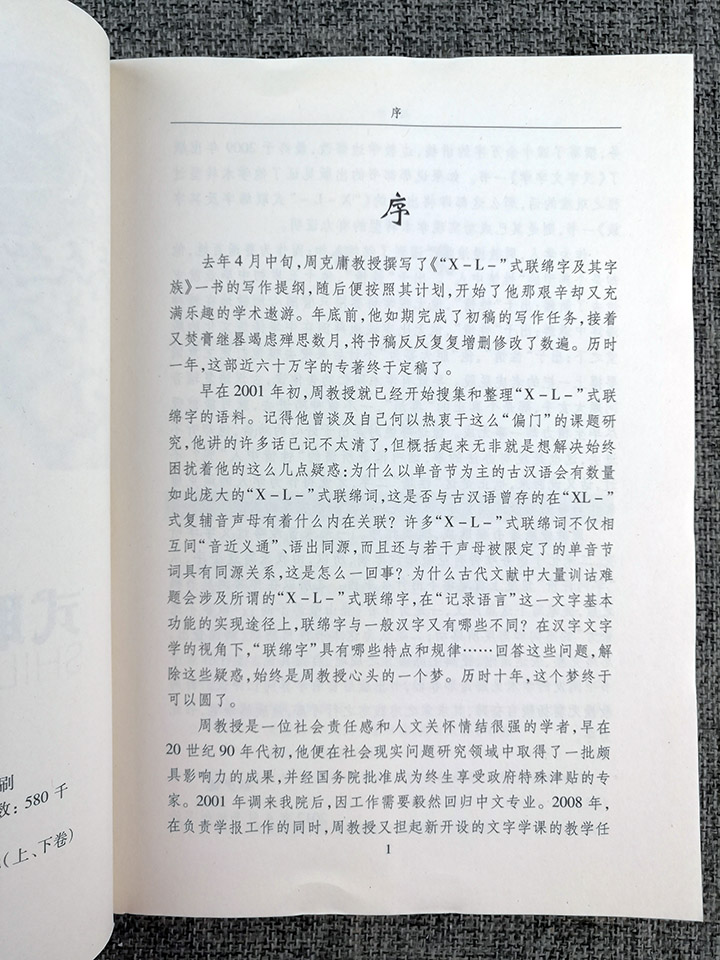 序
序
去年4月中旬，周克庸教授撰写了《“X－L－”式联绵字及其字
族》一书的写作提纲，随后便按照其计划，开始了他那艰辛却又充
满乐趣的学术遨游。年底前，他如期完成了初稿的写作任务，接着
又焚膏继晷竭虑殚思数月，将书稿反反复复增删修改了数遍。历时
一年，这部近六十万字的专著终于定稿了。
早在2001年初，周教授就已经开始搜集和整理“X－L－”式联
绵字的语料。记得他曾谈及自己何以热衷于这么“偏门”的课题研
究，他讲的许多话已记不太清了，但概括起来无非就是想解决始终
困扰着他的这么几点疑惑：为什么以单音节为主的古汉语会有数量
如此庞大的“X－L－”式联绵词，这是否与古汉语曾存的在“XL－”
式复辅音声母有着什么内在关联？许多“X－L－”式联绵词不仅相
互间“音近义通”、语出同源，而且还与若干声母被限定了的单音节
词具有同源关系，这是怎么一回事？为什么古代文献中大量训诂难
题会涉及所谓的“X－L－”式联绵字，在“记录语言”这一文字基本
功能的实现途径上，联绵字与一般汉字又有哪些不同？在汉字文字
学的视角下，“联绵字”具有哪些特点和规律……回答这些问题，解
除这些疑惑，始终是周教授心头的一个梦。历时十年，这个梦终于
可以圆了。
周教授是一位社会责任感和人文关怀情结很强的学者，早在
20世纪90年代初，他便在社会现实问题研究领域中取得了一批颇
具影响力的成果，并经国务院批准成为终生享受政府特殊津贴的专
家。2001年调来我院后，因工作需要毅然回归中文专业。2008年，
在负责学报工作的同时，周教授又担起新开设的文字学课的教学任
1
式联
刷
数：580千
（上、下卷）